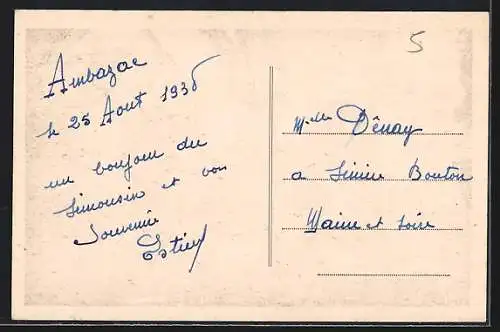 Ambazac
le 25 Aout 1936
un bonjour du
Limousin et bon
Souvenir
5
Melle Dênay
a
Maine et Loire